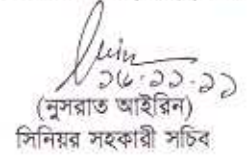 ১৬.১১.১১
(নুসরাত আইরিন)
সিনিয়র সহকারী সচিব